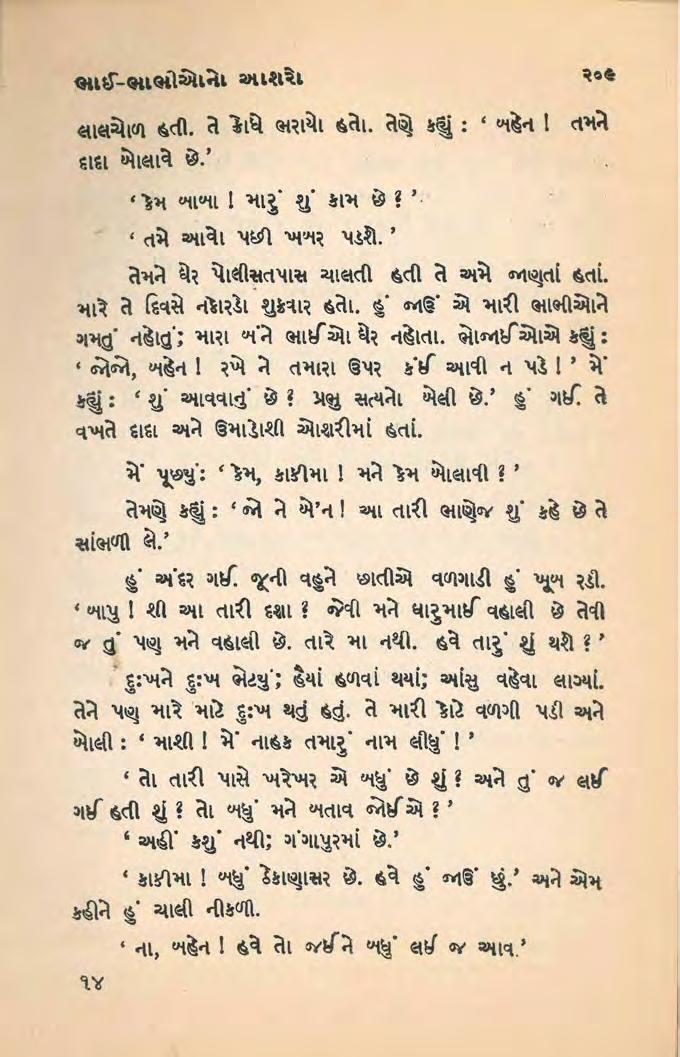 ભાઈ-ભાભીઓનો આશરો ૨૦૯
લાલચોળ હતી. તે ક્રોધે ભરાયો હતો. તેણે કહ્યું : ‘ બહેન ! તમને
દાદા બોલાવે છે.’
‘ કેમ બાબા ! મારું શું કામ છે ? ’
‘ તમે આવો પછી ખબર પડશે. ’
તેમને ઘેર પોલીસતપાસ ચાલતી હતી તે અમે જાણતાં હતાં.
મારે તે દિવસે નકોરડો શુક્રવાર હતો. હું જાઉં એ મારી ભાભીઓને
ગમતું નહોતું; મારા બંને ભાઈઓ ઘેર નહોતા. ભોજાઈઓએ કહ્યું :
‘ જોજો, બહેન ! રખે ને તમારા ઉપર કંઈ આવી ન પડે ! ’ મેં
કહ્યું : ‘ શું આવવાનું છે ? પ્રભુ સત્યનો બેલી છે.’ હું ગઈ. તે
વખતે દાદા અને ઉમાડોશી ઓશરીમાં હતાં.
મેં પૂછ્યું: ‘ કેમ, કાકીમા ! મને કેમ બોલાવી ? ’
તેમણે કહ્યું : ‘ જો ને બે’ન ! આ તારી ભાણેજ શું કહે છે તે
સાંભળી લે.’
હું અંદર ગઈ. જૂની વહુને છાતીએ વળગાડી હું ખૂબ રડી.
‘ બાપુ ! શી આ તારી દશા ? જેવી મને ધારુમાઈ વહાલી છે તેવી
જ તું પણ મને વહાલી છે. તારે મા નથી. હવે તારું શું થશે ? ’
દુઃખને દુઃખ ભેટયું; હૈયાં હળવાં થયાં; આંસુ વહેવા લાગ્યાં.
તેને પણ મારે માટે દુઃખ થતું હતું. તે મારી કોટે વળગી પડી અને
બોલી : ‘ માશી ! મેં નાહક તમારું નામ લીધું ! ’
‘ તો તારી પાસે ખરેખર એ બધું છે શું ? અને તું જ લઈ
ગઈ હતી શું ? તો બધું મને બતાવ જોઈએ ? ’
‘ અહીં કશું નથી; ગંગાપુરમાં છે.’
‘ કાકીમા ! બધું ઠેકાણાસર છે. હવે હું જાઉં છું.’ અને એમ
કહીને હું ચાલી નીકળી.
‘ ના, બહેન ! હવે તો જઈને બધું લઈ જ આવ.’
૧૪